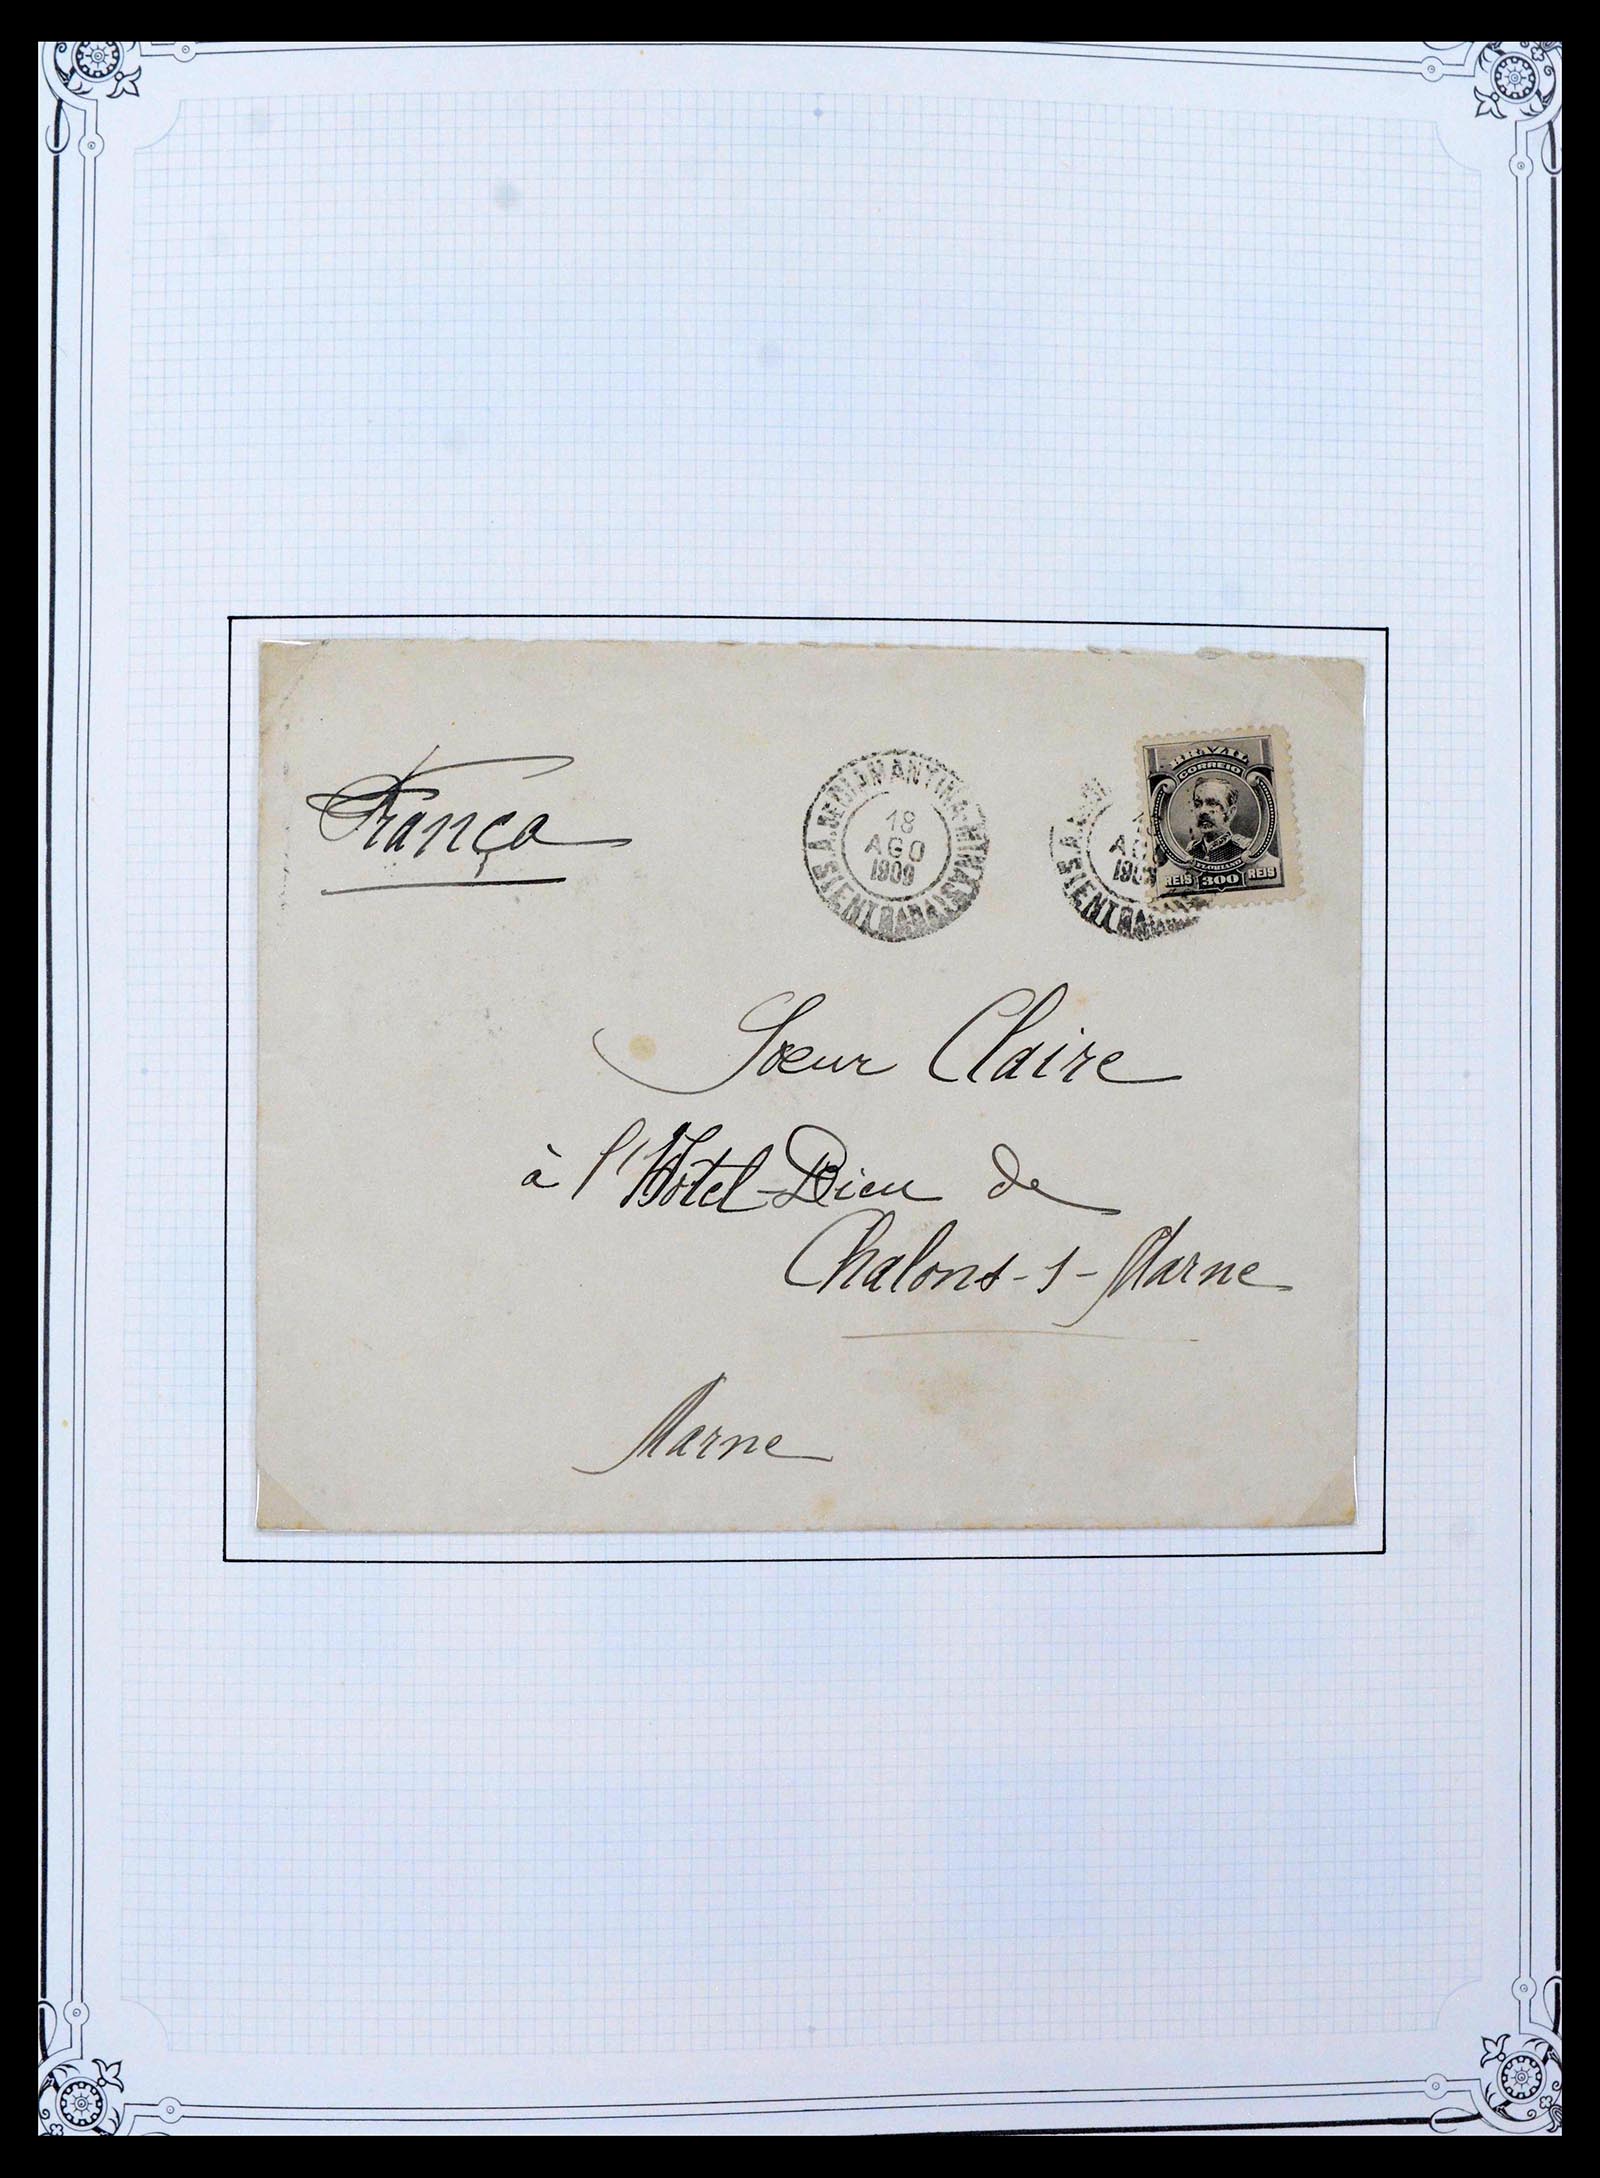 França
A. DE DIAMANTINA-MINAS
18
AGO
1909
AGO
190
BRAZIL
CORREIO
FLORIANO
REIS 300 REIS
Sœur Claire
à l'Hôtel-Dieu de
Chalons-s-Marne
Marne